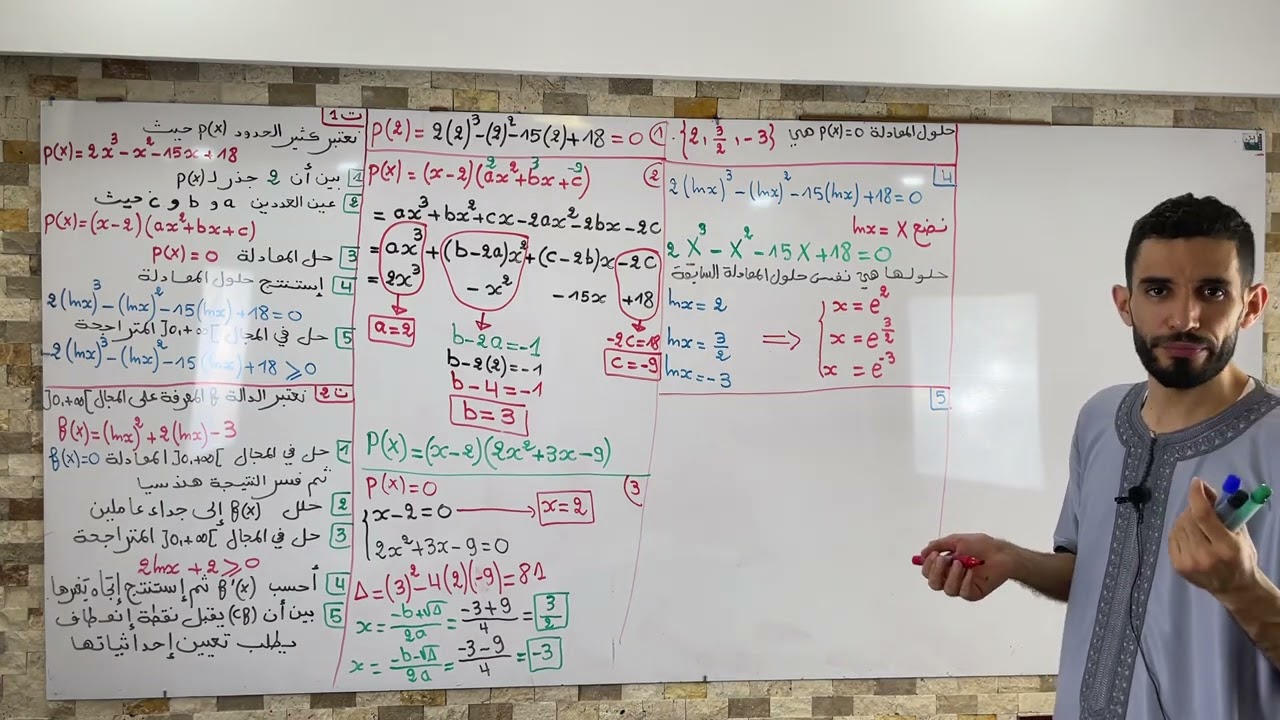 ت1
نعتبر كثير الحدود P(x) حيث
P(x)=2x³-x²-15x+18
1 بين أن 2 جذر لـ P(x)
2 عين العددين a و b و c حيث
P(x)=(x-2)(ax²+bx+c)
3 حل المعادلة P(x)=0
4 إستنتج حلول المعادلة
2(lnx)³-(lnx)²-15(lnx)+18=0
5 حل في المجال ]0,+∞[ المتراجحة
2(lnx)³-(lnx)²-15(lnx)+18⩾0
ت2 نعتبر الدالة f المعرفة على المجال ]0,+∞[
f(x)=(lnx)²+2(lnx)-3
1 حل في المجال ]0,+∞[ المعادلة f(x)=0
ثم فسر النتيجة هندسيا
2 حلل f(x) إلى جداء عاملين
3 حل في المجال ]0,+∞[ المتراجحة
2lnx+2⩾0
4 أحسب f'(x) ثم إستنتج إتجاه تغيرها
5 بين أن (Cf) يقبل نقطة إنعطاف
يطلب تعيين إحداثياتها
P(2)=2(2)³-(2)²-15(2)+18=0 1
P(x)=(x-2)(ax²+bx+c) 2
2 3 -9
=ax³+bx²+cx-2ax²-2bx-2c
=ax³+(b-2a)x²+(c-2b)x-2c
=2x³ -x² -15x +18
a=2
b-2a=-1
b-2(2)=-1
b-4=-1
b=3
-2c=18
c=-9
P(x)=(x-2)(2x²+3x-9)
P(x)=0 3
x-2=0 → x=2
2x²+3x-9=0
Δ=(3)²-4(2)(-9)=81
x=-b+√Δ/2a=-3+9/4=3/2
x=-b-√Δ/2a=-3-9/4=-3
حلول المعادلة P(x)=0 هي {2,3/2,-3}.
4
2(lnx)³-(lnx)²-15(lnx)+18=0
نضع lnx=X
2X³-X²-15X+18=0
حلولها هي نفس حلول المعادلة السابقة
lnx=2
lnx=3/2
lnx=-3
⟹
x=e²
x=e^3/2
x=e⁻³
5